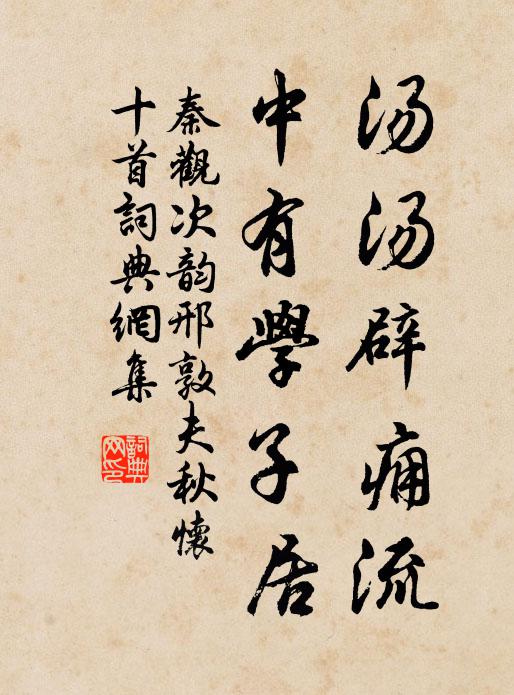 汤汤辟痈流
中有學子居
秦觀次韵邢敦夫秋懷
十首詞典網集
詞典
网印